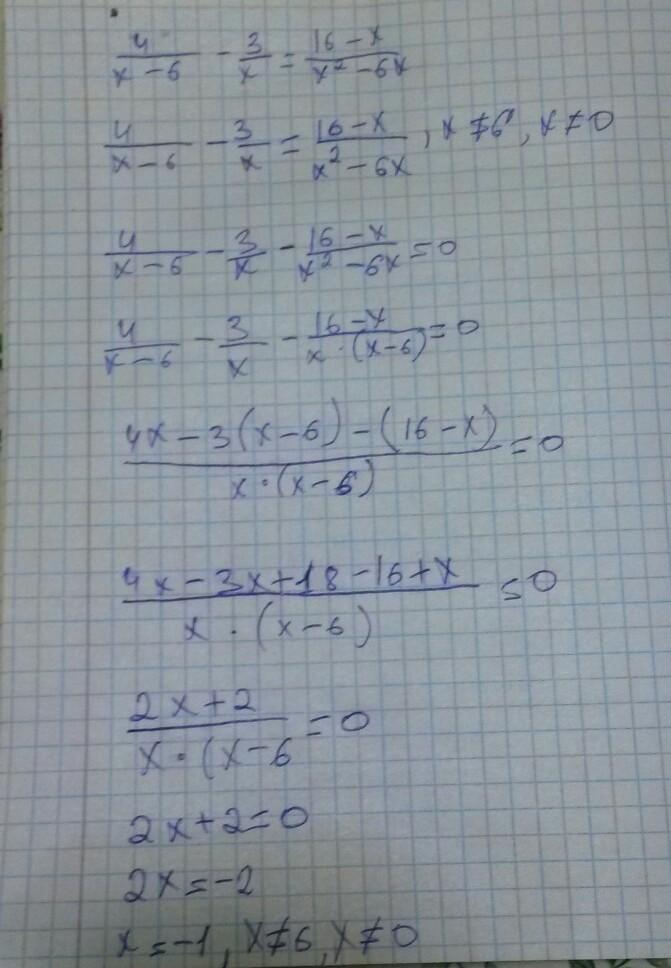 4/(x-6) - 3/x = (16-x)/(x²-6x)
4/(x-6) - 3/x = (16-x)/(x²-6x), x≠6, x≠0
4/(x-6) - 3/x - (16-x)/(x²-6x) = 0
4/(x-6) - 3/x - (16-x)/(x·(x-6)) = 0
(4x-3(x-6)-(16-x))/(x·(x-6)) = 0
(4x-3x+18-16+x)/(x·(x-6)) = 0
(2x+2)/(x·(x-6 = 0
2x+2=0
2x=-2
x=-1, x≠6, x≠0